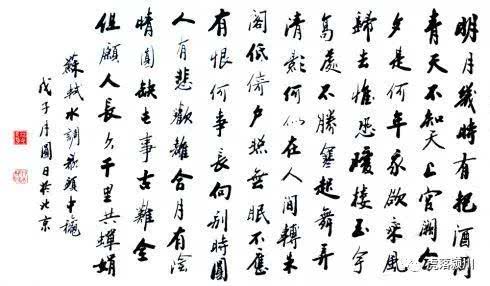 明月幾時有把酒问
青天不知天上宫阙今
夕是何年我欲乘风
歸去惟恐瓊楼玉宇
高處不勝寒起舞弄
清影何似在人间轉朱
阁低倚户照無眠不應
有恨何事長向别時圓
人有悲歡離合月有陰
晴圓缺此事古難全
但願人長久千里共蟬娟
蘇軾水調歌頭中秋
戊子月圓日於北京